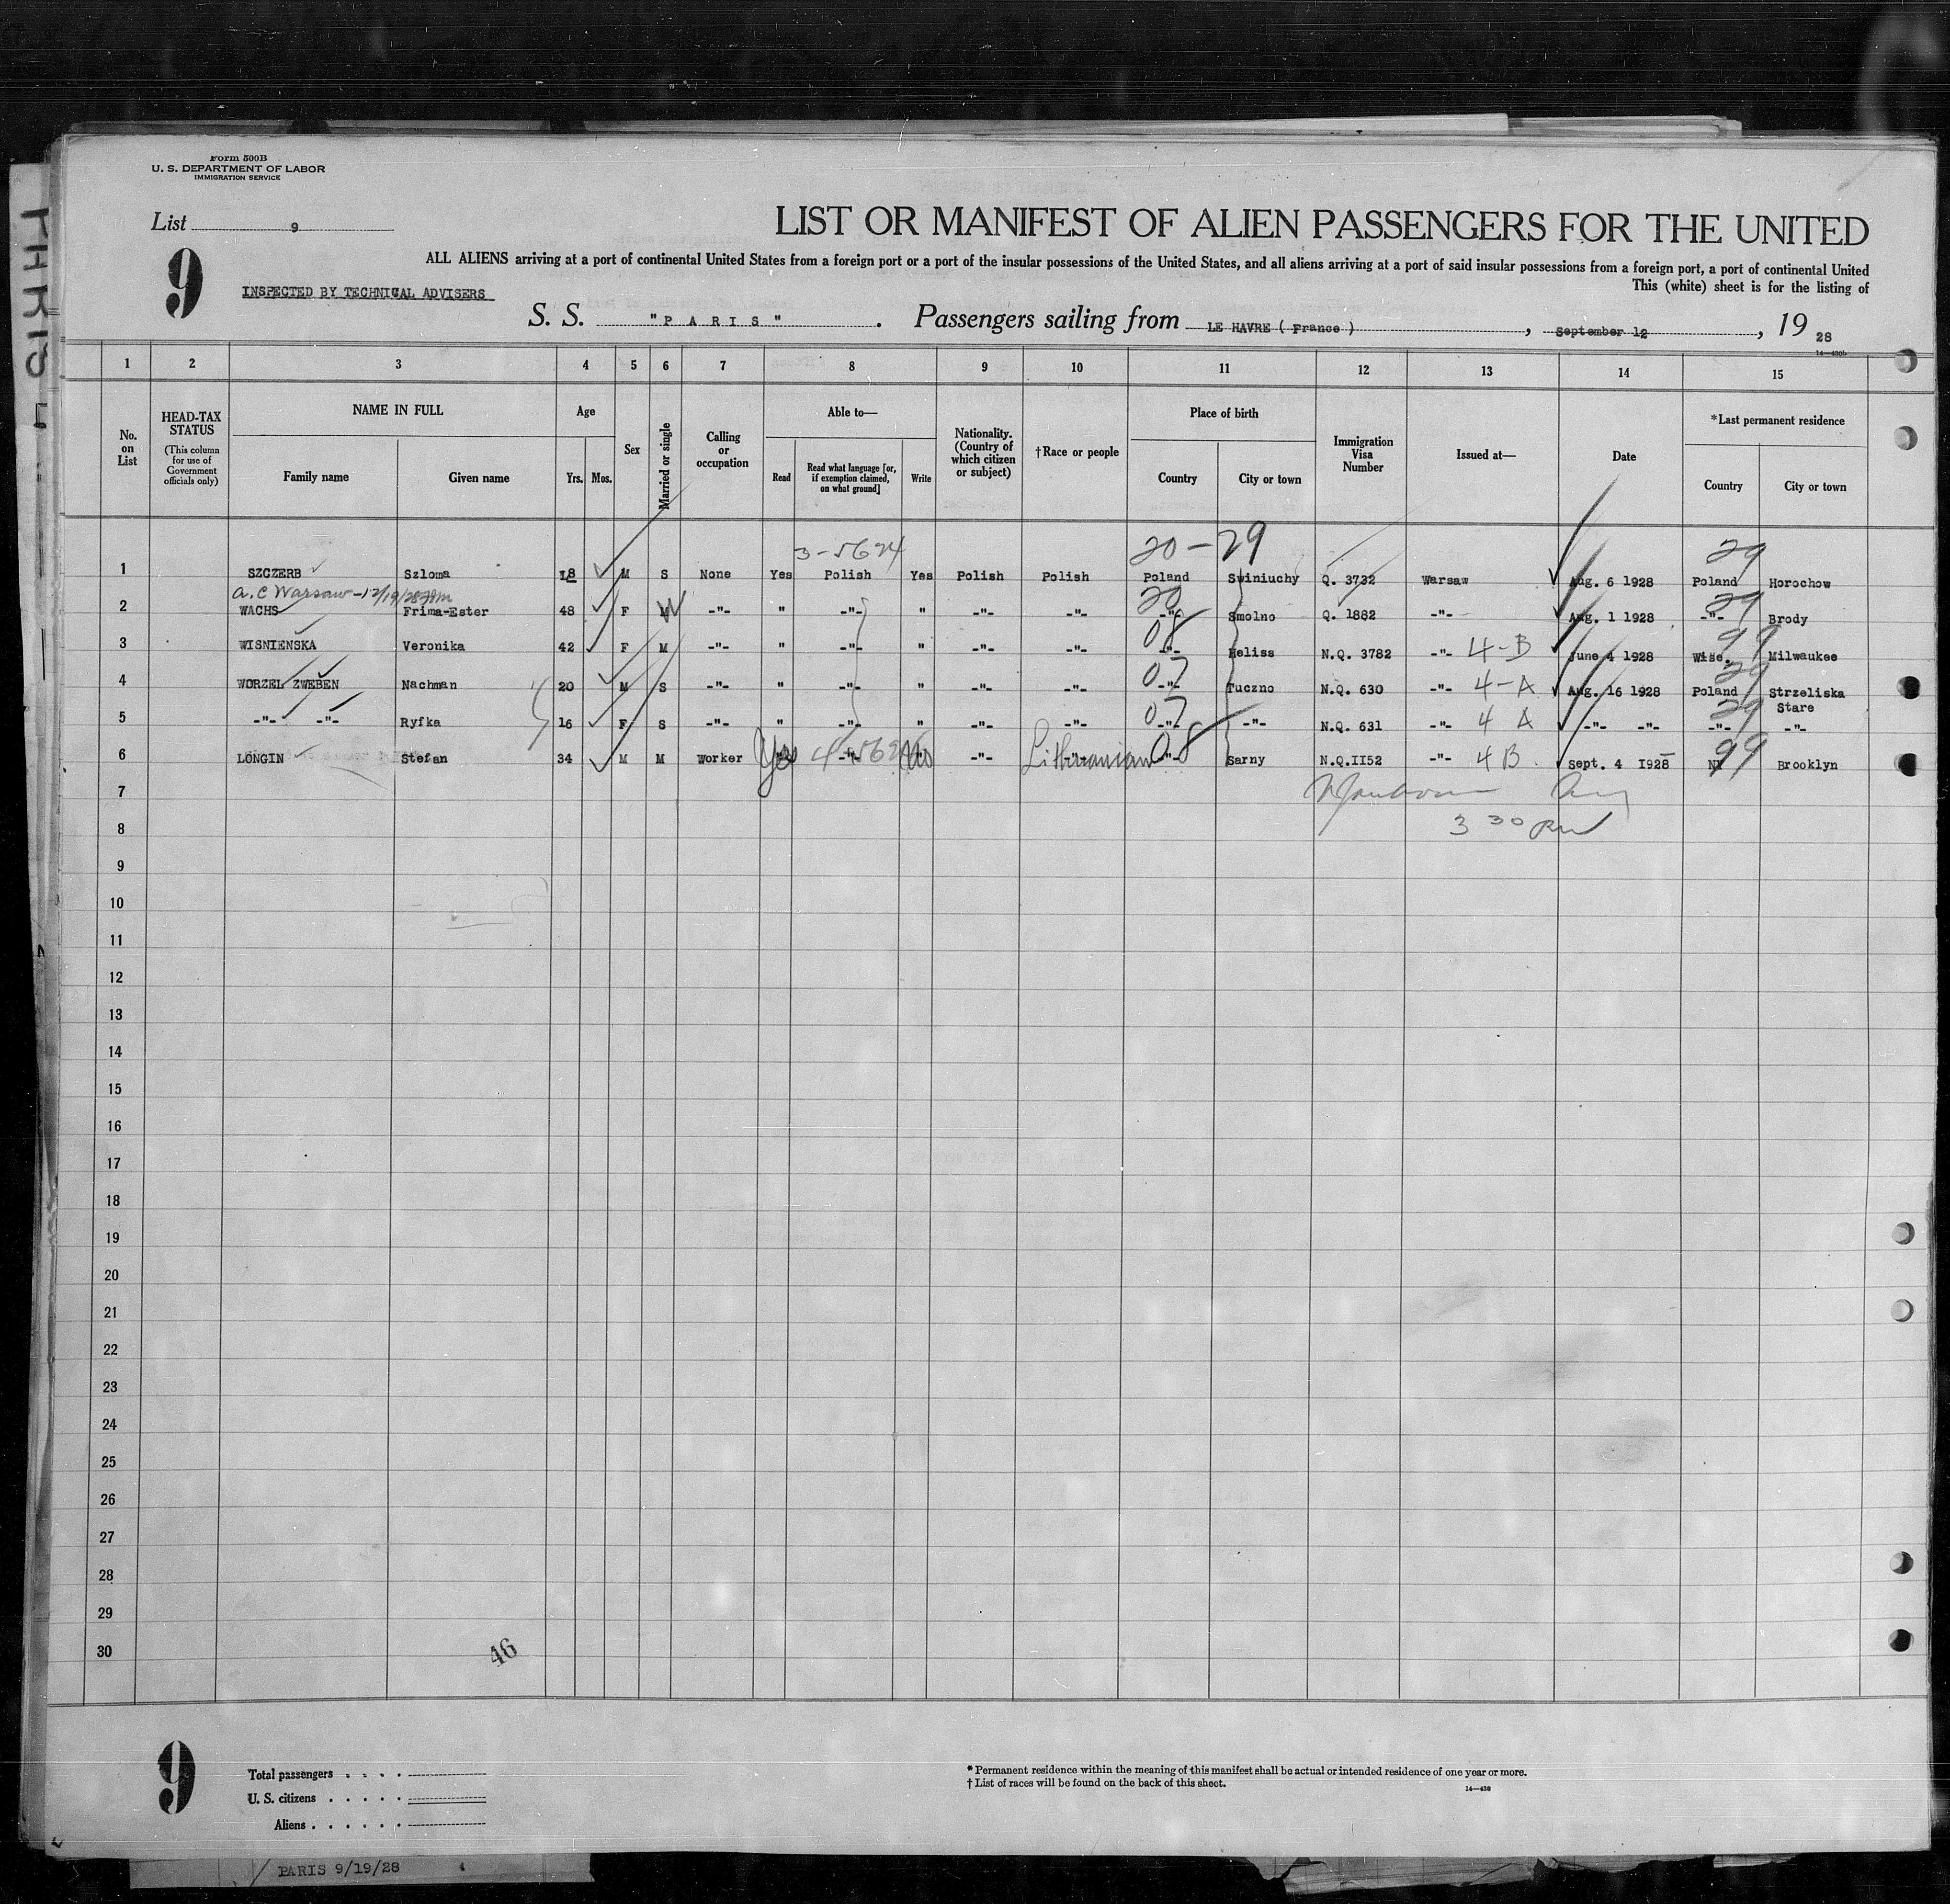 Form 500B
U. S. DEPARTMENT OF LABOR
IMMIGRATION SERVICE
List 9
LIST OR MANIFEST OF ALIEN PASSENGERS FOR THE UNITED
9
ALL ALIENS arriving at a port of continental United States from a foreign port or a port of the insular possessions of the United States, and all aliens arriving at a port of said insular possessions from a foreign port, a port of continental United
This (white) sheet is for the listing of
INSPECTED BY TECHNICAL ADVISERS
S. S. "PARIS". Passengers sailing from LE HAVRE ( France ), September 12, 19 28
14—430b
1 2 3 4 5 6 7 8 9 10 11 12 13 14 15
No. on List
HEAD-TAX STATUS
(This column for use of Government officials only)
NAME IN FULL
Family name Given name
Age
Yrs. Mos.
Sex
Married or single
Calling or occupation
Able to—
Read
Read what language [or, if exemption claimed, on what ground]
Write
Nationality. (Country of which citizen or subject)
†Race or people
Place of birth
Country City or town
Immigration Visa Number
Issued at—
Date
*Last permanent residence
Country City or town
3-5624 20-29 29
1 SZCZERB Szloma 18 M S None Yes Polish Yes Polish Polish Poland Swiniuchy Q. 3732 Warsaw Aug. 6 1928 Poland Horochow
a.C Warsaw - 12/19/28 20 29
2 WACHS Frima-Ester 48 F M W -"- " -"- " -"- -"- -"- Smolno Q. 1882 -"- Aug. 1 1928 -"- Brody
08 99
3 WISNIENSKA Veronika 42 F M -"- " -"- " -"- -"- -"- Heliss N.Q. 3782 -"- 4-B June 4 1928 Wisc. Milwaukee
07 29
4 WORZEL ZWEBEN Nachman 20 M S -"- " -"- " -"- -"- -"- Tuczno N.Q. 630 -"- 4-A Aug. 16 1928 Poland Strzeliska Stare
07 29
5 -"- -"- Ryfka 16 F S -"- " -"- " -"- -"- -"- -"- N.Q. 631 -"- 4 A -"- -"- -"- -"-
6 LONGIN Stefan 34 M M Worker Yes " 4-5624 -"- No " -"- Lithuanian -"- 08 -"- Sarny N.Q.II52 -"- 4B Sept. 4 I928 NY 99 Brooklyn
7
8 3 30 PM
9
10
11
12
13
14
15
16
17
18
19
20
21
22
23
24
25
26
27
28
29
30
46
9
Total passengers . . . .
U. S. citizens . . . . .
Aliens . . . . . .
* Permanent residence within the meaning of this manifest shall be actual or intended residence of one year or more.
† List of races will be found on the back of this sheet.
14—430
PARIS 9/19/28